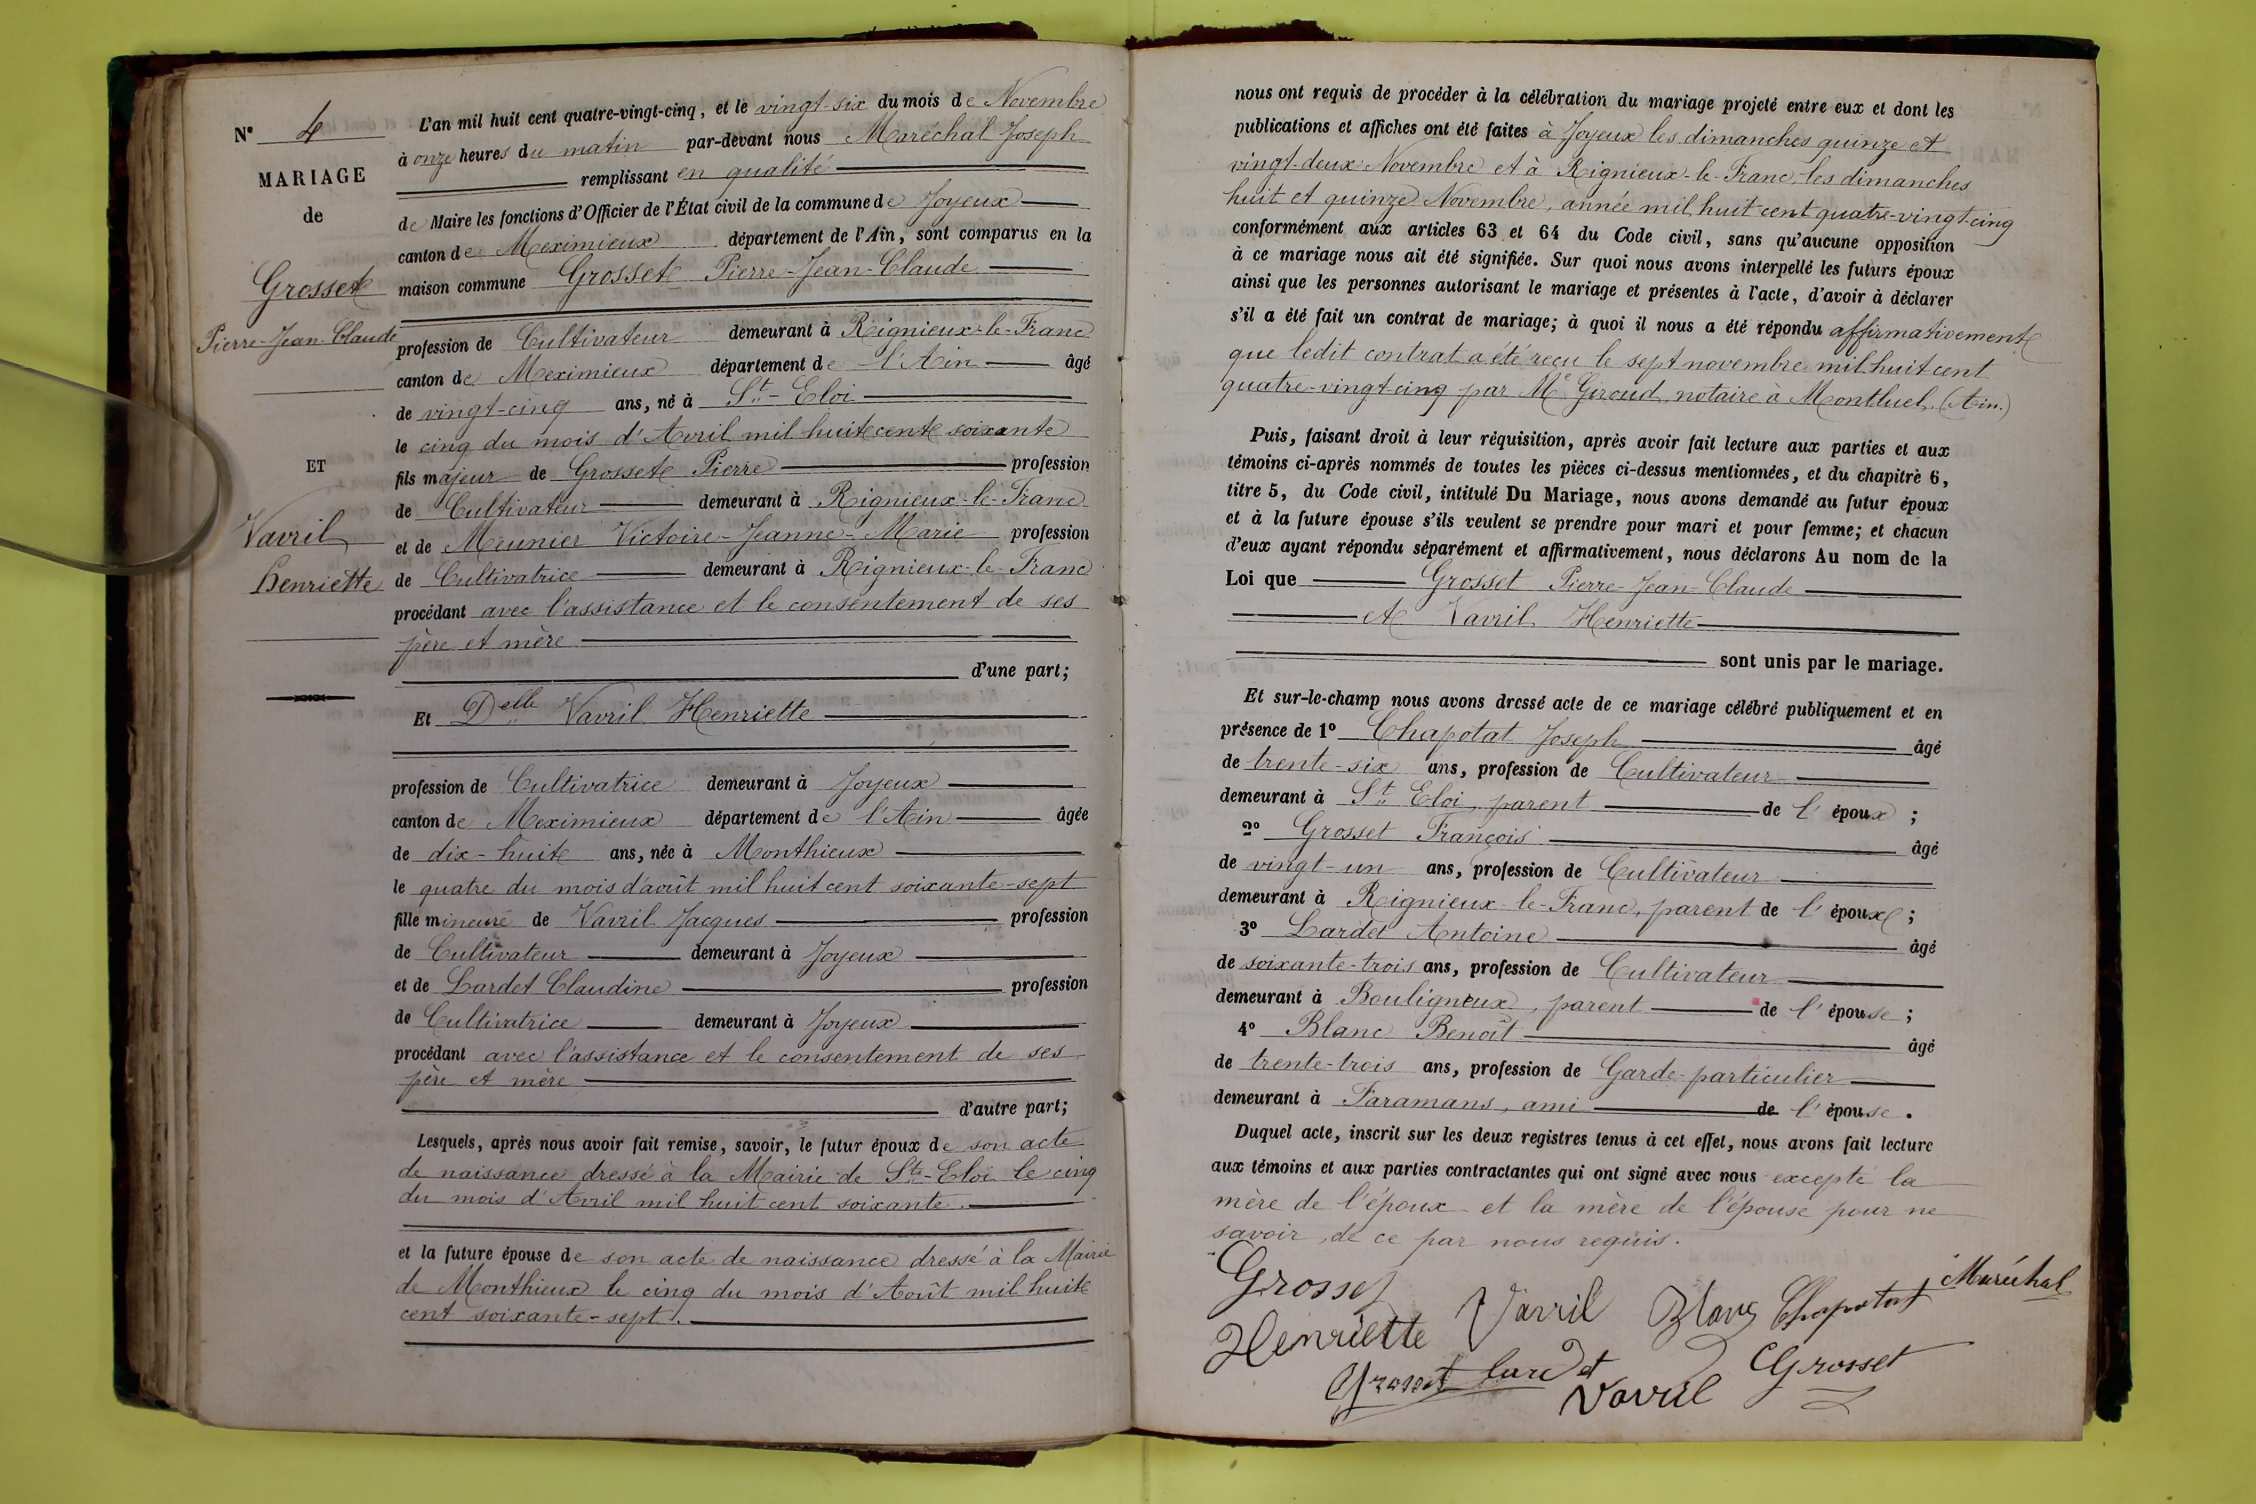 N° 4
MARIAGE
de
Grosset
Pierre-Jean-Claude
ET
Vavril
Henriette
L'an mil huit cent quatre-vingt-cinq, et le vingt-six du mois de Novembre
à onze heures du matin par-devant nous Maréchal Joseph
remplissant en qualité
de Maire les fonctions d'Officier de l'État civil de la commune de Joyeux
canton de Meximieux département de l'Ain, sont comparus en la
maison commune Grosset Pierre-Jean-Claude
profession de Cultivateur demeurant à Rignieux-le-Franc
canton de Meximieux département de l'Ain âgé
de vingt-cinq ans, né à St-Eloi
le cinq du mois d'Avril mil huit cent soixante
fils majeur de Grosset Pierre profession
de Cultivateur demeurant à Rignieux-le-Franc
et de Meunier Victoire-Jeanne-Marie profession
de Cultivatrice demeurant à Rignieux-le-Franc
procédant avec l'assistance et le consentement de ses
père et mère
d'une part;
Et Delle Vavril Henriette
profession de Cultivatrice demeurant à Joyeux
canton de Meximieux département de l'Ain âgée
de dix-huit ans, née à Monthieux
le quatre du mois d'août mil huit cent soixante-sept
fille mineure de Vavril Jacques profession
de Cultivateur demeurant à Joyeux
et de Lardet Claudine profession
de Cultivatrice demeurant à Joyeux
procédant avec l'assistance et le consentement de ses
père et mère
d'autre part;
Lesquels, après nous avoir fait remise, savoir, le futur époux de son acte
de naissance dressé à la Mairie de St-Eloi le cinq
du mois d'Avril mil huit cent soixante.
et la future épouse de son acte de naissance dressé à la Mairie
de Monthieux le cinq du mois d'Août mil huit
cent soixante-sept.
nous ont requis de procéder à la célébration du mariage projeté entre eux et dont les
publications et affiches ont été faites à Joyeux les dimanches quinze et
vingt-deux Novembre et à Rignieux-le-Franc, les dimanches
huit et quinze Novembre, année mil huit cent quatre-vingt-cinq
conformément aux articles 63 et 64 du Code civil, sans qu'aucune opposition
à ce mariage nous ait été signifiée. Sur quoi nous avons interpellé les futurs époux
ainsi que les personnes autorisant le mariage et présentes à l'acte, d'avoir à déclarer
s'il a été fait un contrat de mariage; à quoi il nous a été répondu affirmativement
que ledit contrat a été reçu le sept novembre mil huit cent
quatre-vingt-cinq par Me Giroud, notaire à Montluel. (Ain.)
Puis, faisant droit à leur réquisition, après avoir fait lecture aux parties et aux
témoins ci-après nommés de toutes les pièces ci-dessus mentionnées, et du chapitre 6,
titre 5, du Code civil, intitulé Du Mariage, nous avons demandé au futur époux
et à la future épouse s'ils veulent se prendre pour mari et pour femme; et chacun
d'eux ayant répondu séparément et affirmativement, nous déclarons Au nom de la
Loi que Grosset Pierre-Jean-Claude
et Vavril Henriette
sont unis par le mariage.
Et sur-le-champ nous avons dressé acte de ce mariage célébré publiquement et en
présence de 1° Chapotat Joseph âgé
de trente-six ans, profession de Cultivateur
demeurant à St Eloi, parent de l'époux ;
2° Grosset François âgé
de vingt-un ans, profession de Cultivateur
demeurant à Rignieux-le-Franc, parent de l'époux ;
3° Lardet Antoine âgé
de soixante-trois ans, profession de Cultivateur
demeurant à Bouligneux, parent de l'épouse ;
4° Blanc Benoît âgé
de trente-trois ans, profession de Garde-particulier
demeurant à Faramans, ami de l'épouse.
Duquel acte, inscrit sur les deux registres tenus à cet effet, nous avons fait lecture
aux témoins et aux parties contractantes qui ont signé avec nous excepté la
mère de l'époux et la mère de l'épouse pour ne
savoir, de ce par nous requis.
Grosset
Henriette Vavril Blanc Chapotat Maréchal
Grosset Lardet Vavril Grosset